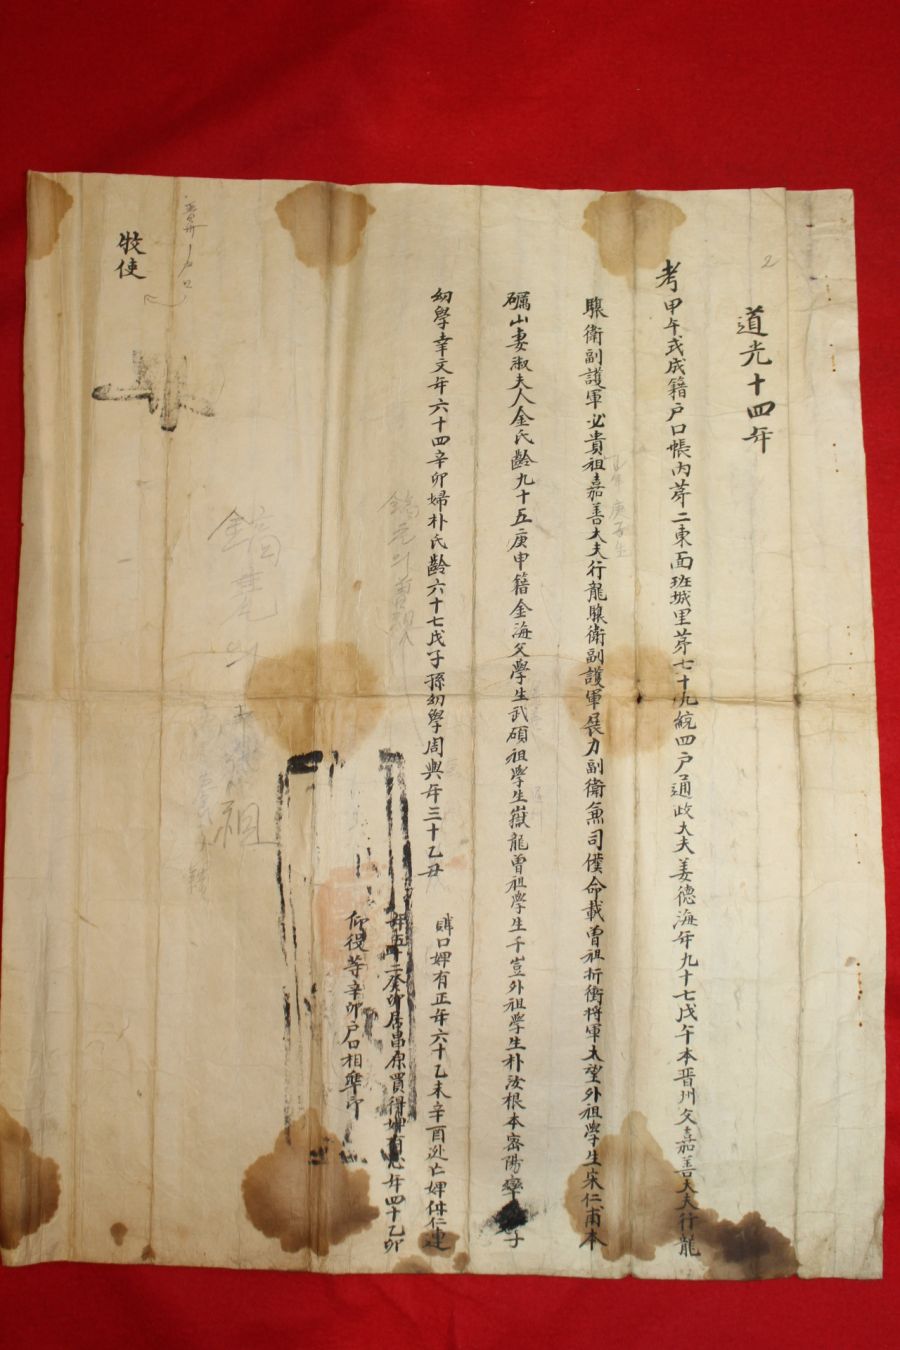 道光十四年
考甲午式成籍戶口帳內苐二東面班城里苐七十九統四戶通政大夫姜德海年九十七戊午本晋州父嘉善大夫行龍
驤衛副護軍必貴祖嘉善大夫行龍驤衛副護軍展力副衛兼司僕命載曾祖折衝將軍太望外祖學生宋仁甫本
礪山妻淑夫人金氏齡九十五庚申籍金海父學生武碩祖學生嶽龍曾祖學生千豈外祖學生朴汝根本密陽率子
幼學幸文年六十四辛卯婦朴氏齡六十七戊子孫幼學周興年三十乙丑
賤口婢有正年六十乙未辛酉逃亡婢仁連
年五十二癸卯居昌原買得婢 年四十乙卯
仰役等辛卯戶口相準印
牧使
2
庚子生
祖